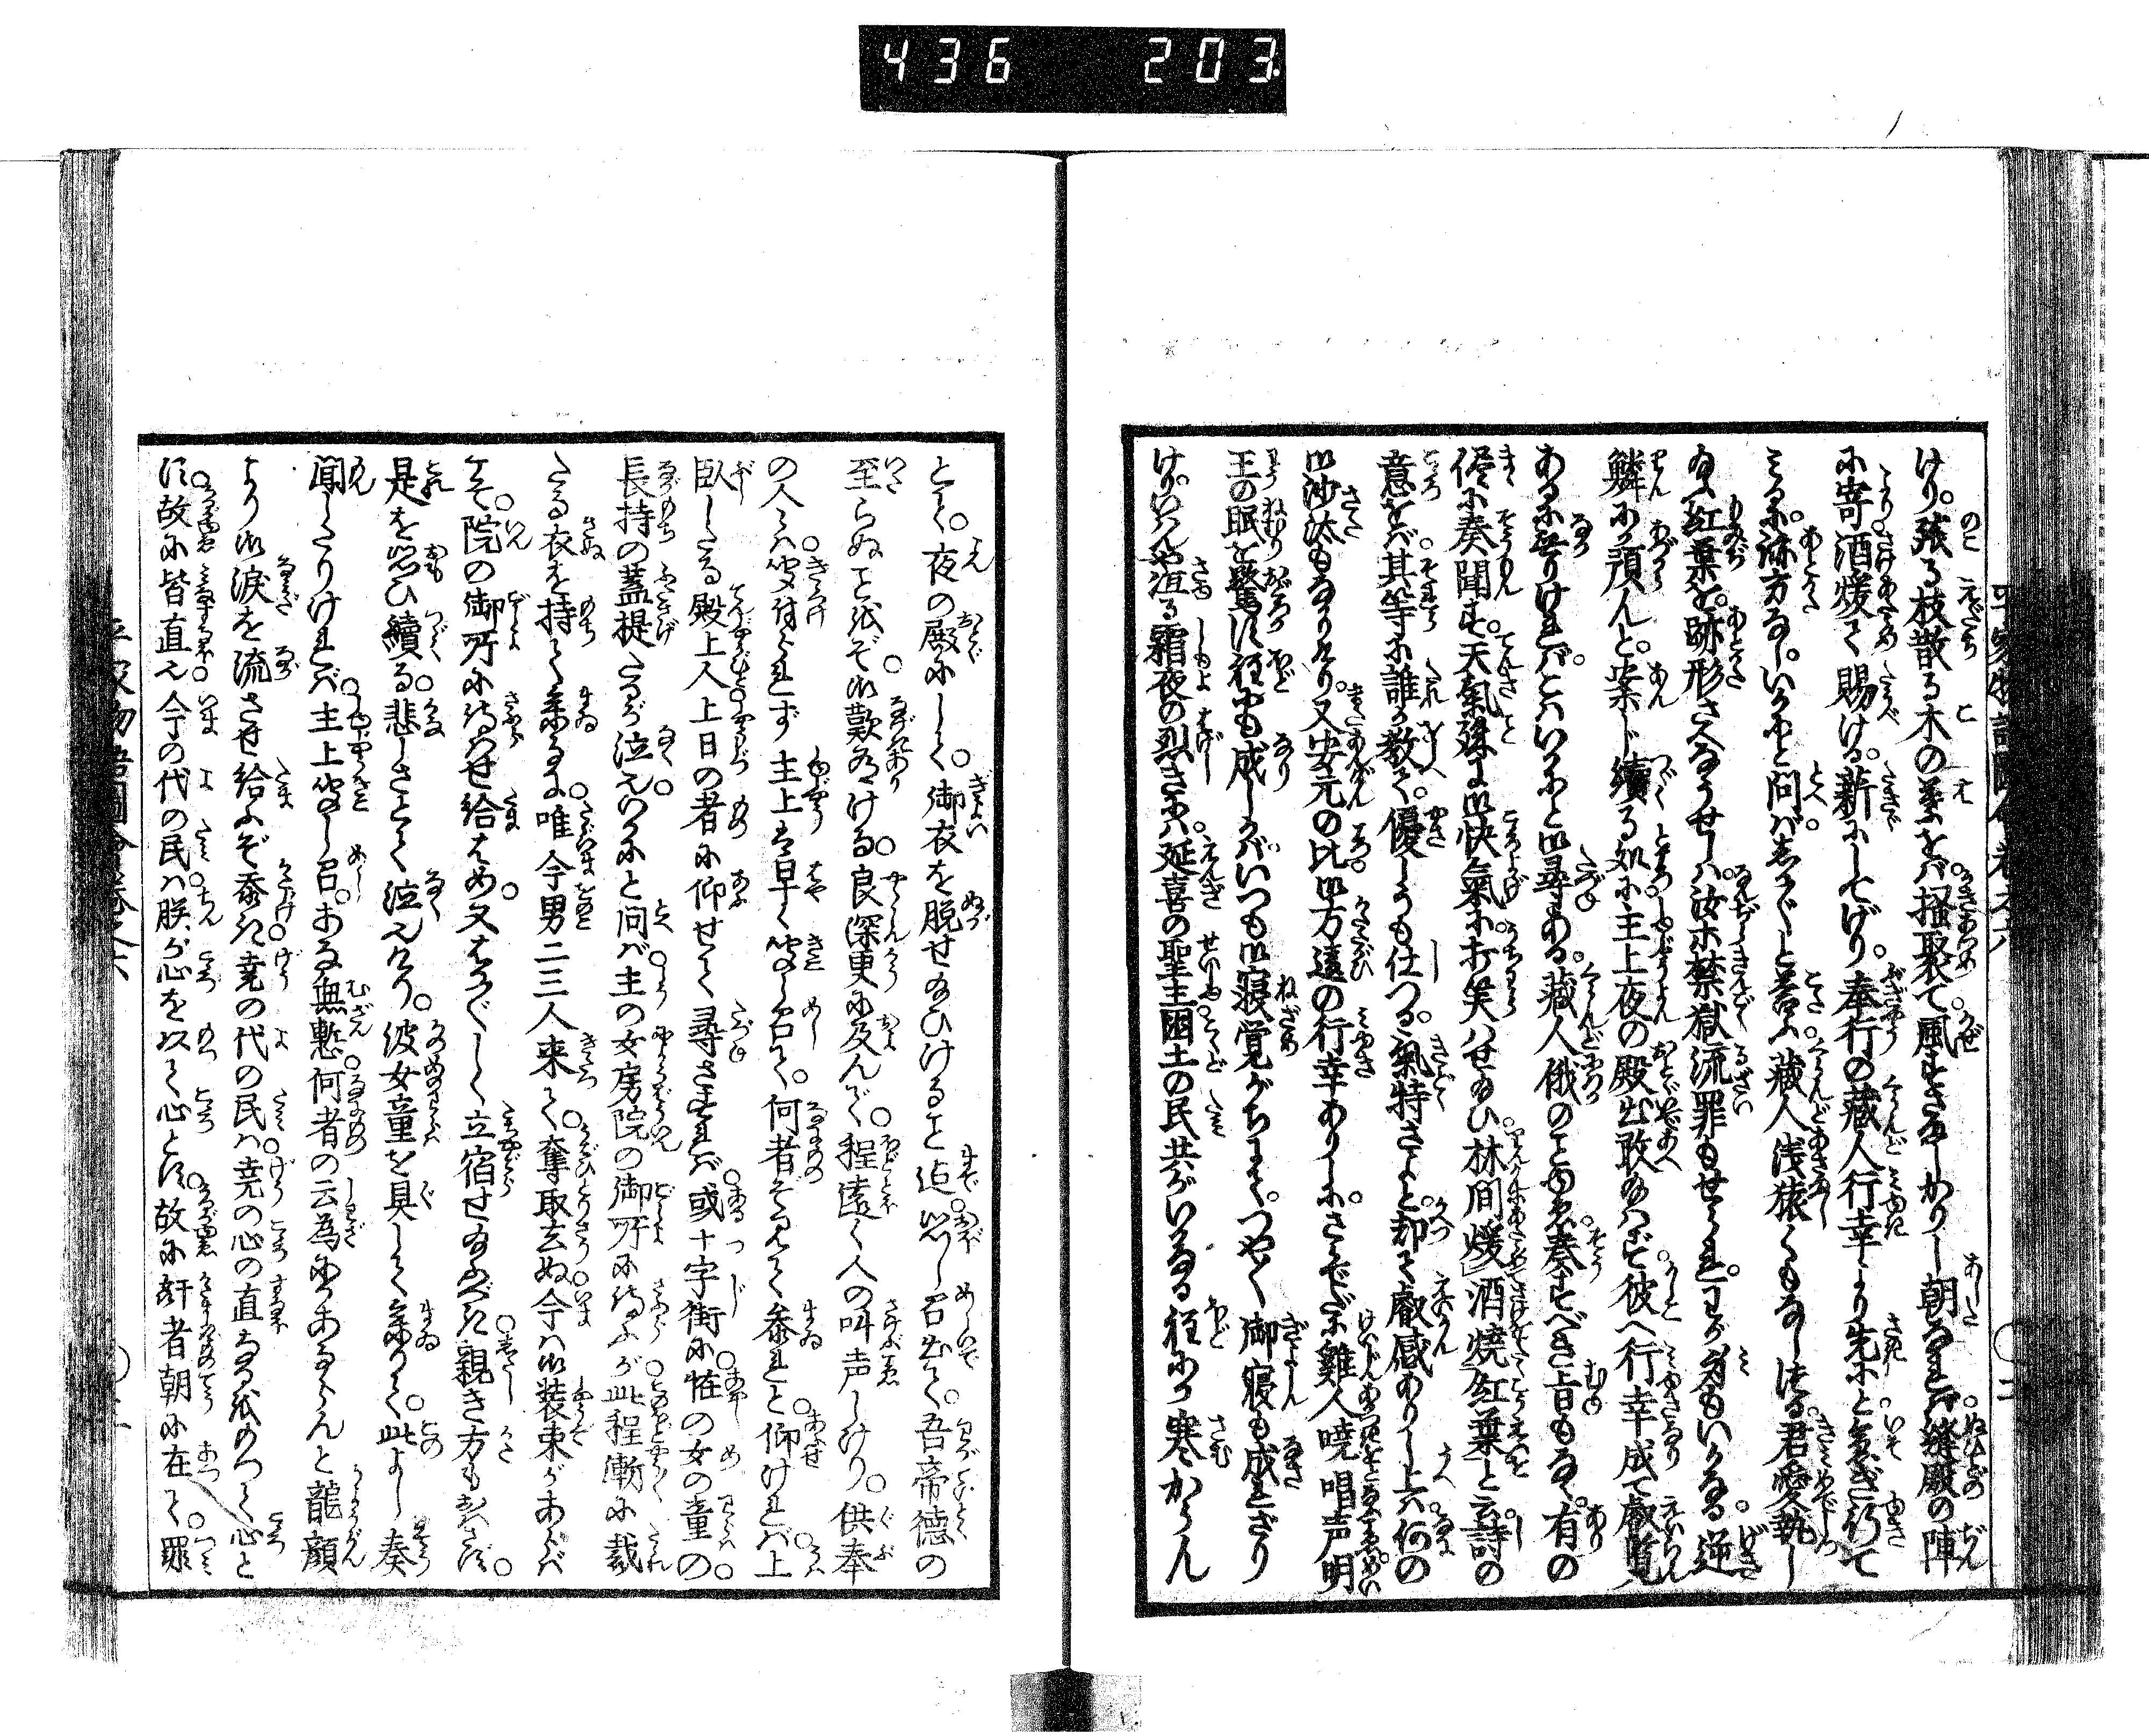 436 203
けり。残る枝散る木の葉をば掻聚て。風すさまじかりし朝なれば。縫殿の陣
に寄。酒煖て賜ける。薪にしてげり。奉行の蔵人行幸より先にと。急ぎ行て
みるに。跡方なし。いかにと問ば。しか〴〵と答ふ。蔵人浅猿くもなし つる。君愛執し
給ふ紅葉を。跡形さへなうせしは。汝等禁獄流罪もせられ。わが身もいかなる。逆
鱗にか預んと。案じ續る処に。主上夜の殿出敢給はず。彼へ行幸成て叡覧
あるに無りければ。こはいかにと御尋ある。蔵人俄のことゆゑ。奏すべき旨もなく。有の
侭に奏聞す。天氣殊に御快氣に打笑はせ給ひ。林間煖酒焼紅葉と云詩の
意をば。其等に誰か教て。優しうも仕つる。氣特さよと。却て叡感ありし上は。何の
御沙汰もなかりけり。又安元の比。御方違の行幸ありしに。さらでだに雞人暁唱声明
王の眠を驚す程にも成しかば。いつも御寝覚がちにて。つや〳〵御寝も成ざり
けり。いはんや冱る霜夜の烈きには。延喜の聖主。国土の民共がいかなる程にか寒からん
とて。夜の殿にして。御衣を脱せ給ひけること迄。思し召出て。吾帝徳の
至らぬことをぞ。御歎有ける。良深更に及んで。程遠く人の叫声しけり。供奉
の人々は聞付られず 主上は早く聞し召て。何者ぞ見て参れと。仰ければ。上
臥したる殿上人。上日の者に仰せて 尋さすれば。或十字街に。怪の女の童の。
長持の蓋提たるが泣て。いかにと問ば。主の女房院の御所に侍ふが。此程漸に裁
たる衣を持て参るに。唯今男二三人来て。奪取去ぬ。今は御装束があらば
こそ。院の御所に侍はせ給はめ。又はか〴〵しく立宿せ給ふべき。親き方もましまさず。
是を思ひ續る。悲しさとて泣てけり。彼女童を具して参りて。此よし奏
聞したりければ。主上聞し召。あな無慙。何者の云為にかあるらんと 龍顔
より御涙を流させ給ふぞ忝き。堯の代の民は。堯の心の直なるをもつて心と
す。故に皆直て 今の代の民は。朕が心を以て心とす。故に姧者朝に在て。罪